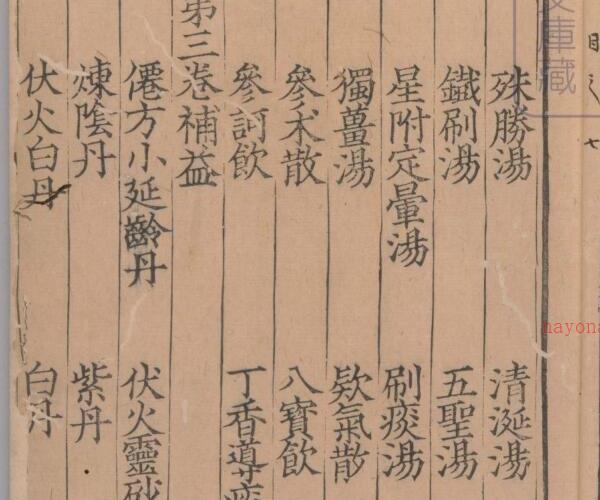 目 七
庫藏
殊勝湯 清涎湯
鐵刷湯 五聖湯
星附定暈湯 刷痰湯
獨薑湯 欵氣散
參朮散 八寶飲
參訶飲 丁香導痰
第三卷補益
僊方小延齡丹 伏火靈砂
煉陰丹 紫丹
伏火白丹 白丹
nayona